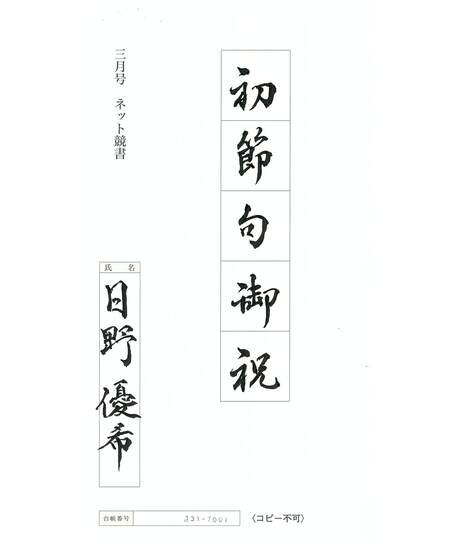 初節句御祝
三月号 ネット競書
氏名
日野優希
台帳番号 J31-7001
〈コピー不可〉